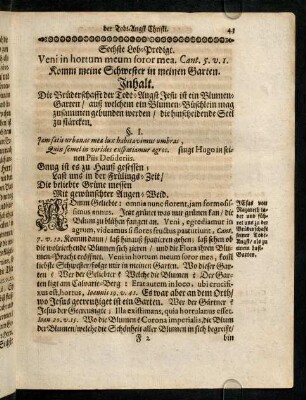 der Todt-Angst Christi. 43
Sechste Lob-Predigt.
Veni in hortum meum soror mea. Cant. 5. v. 1.
Komm meine Schwester in meinen Garten.
Inhalt.
Die Bruderschafft der Todt-Angst Jesu ist ein Blumen-
Garten / auß welchem ein Blumen-Büschlein mag
zusammen gebunden werden / die hinscheidende Seel
zu stärcken.
§. I.
Jam satis urbanas mea lux habitavimus umbras,
Quin semel in virides exspatiamur agros. singt Hugo in sei-
nen Piis Desideriis.
Gnug ist es zu Hauß gesessen;
Last uns in der Frülings-Zeit/
Die beliebte Grüne messen
Mit gewünschter Augen-Weid.
Geliebte: omnia nunc florent, jam formo-
sissimus annus. Jetzt grünet was nur grünen kan / die
Bäum zu blühen fangen an. Veni, egrediamur in
agrum, videamus si flores fructus parturiunt, Cant.
7. v. 12. Komm dann / laß hinauß spatziren gehen; laß sehen ob
die wolriechende Blumen sich zeigen / und die Flora ihren Blu-
men-Pracht eröffnet. Veni in hortum meum soror mea, komm
liebste Schwester folge mir in meinen Garten. Wo dieser Gar-
ten? Wer der Geliebte? Welche die Blumen? Der Gar-
ten ligt am Calvarie-Berg: Erat autem in loco, ubi crucifi-
xus est, hortus, Joannis 19. v. 41. Es war aber an dem Orth /
wo Jesus gecreutziget ist ein Garten. Wer der Gärtner?
Jesus der Gecreutzigte; Illa existimans, quia hortulanus esset.
Joan. 20. v. 15. Wo die Blumen? Corona imperialis, die Blum
der Blumen / welche die Schönheit aller Blumen in sich begreifft /
F 2 bin
Jesus von
Nazareth
der
Bruderschafft
Todt-
Angst
Garten.